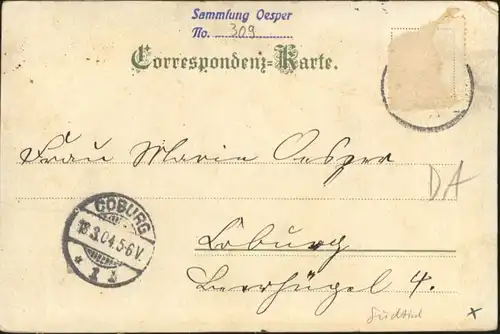 Sammlung Oesper
No. 309
Correspondenz-Karte.
Frau Marie Oesper
DA
COBURG
18.3.04.5-6V.
* 1 b
Coburg
Leerhügel 4.
Südtirol x